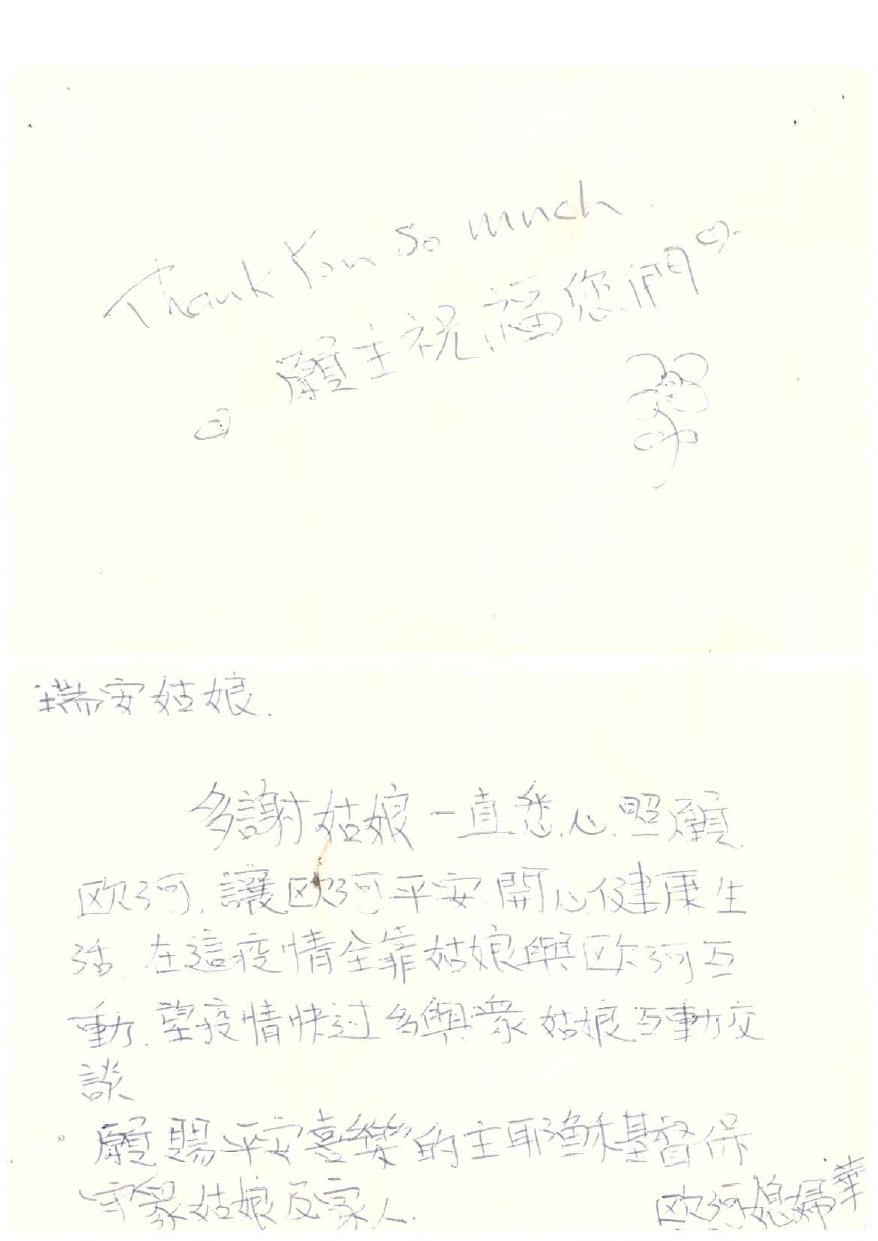 Thank You So much.
願主祝福您們
瑞安姑娘.
多謝姑娘一直悉心照顧
欧河, 讓欧河平安開心健康生
活 在這疫情全靠姑娘與欧河互
動. 望疫情快过多與眾姑娘互動交
談
願賜平安喜樂的主耶穌基督保
守眾姑娘及家人.
欧河媳婦華